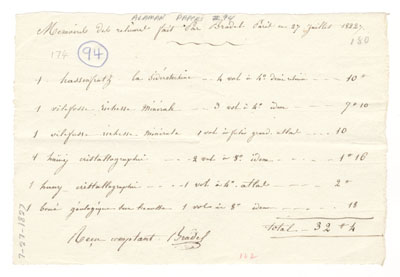 ALAMAN PAPERS #94
Memoire de reliure fait Par Bradel Paris ce 27 juillet 1827
174 94 180
1 hassenfratz la Sidérotechnie 4 vol in 4° demi reliure 10 "
1 villefosse richesse minérale 3 vol in 4° idem 7 " 10
1 villefosse richesse minérale 1 vol in folio grand atlas 10
1 haüy cristallographie 2 vol in 8° idem 1 " 16
1 haüy cristallographie 1 vol in 4° atlas 2 "
1 boué géologique sur 1 vol in 8° idem 18
Total 32 " 4
Reçu comptant Bradel
7-5-1827